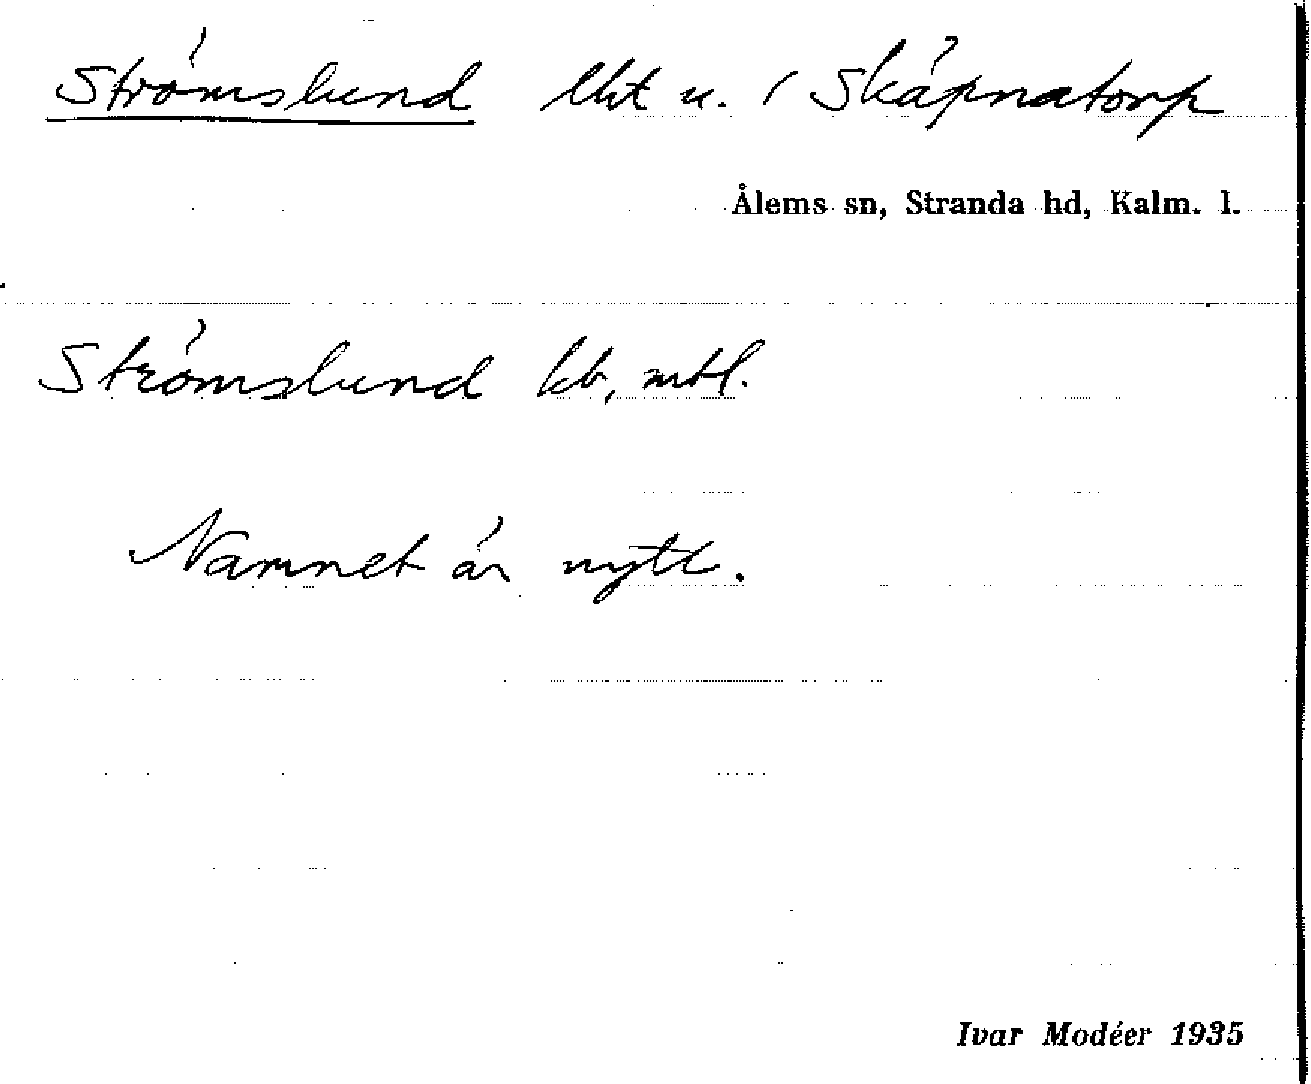 Strömslund lht u. / Skäpnatorp
Ålems sn, Stranda hd, Kalm. l.
Strömslund kb, mtl.
Namnet är nytt.
Ivar Modéer 1935